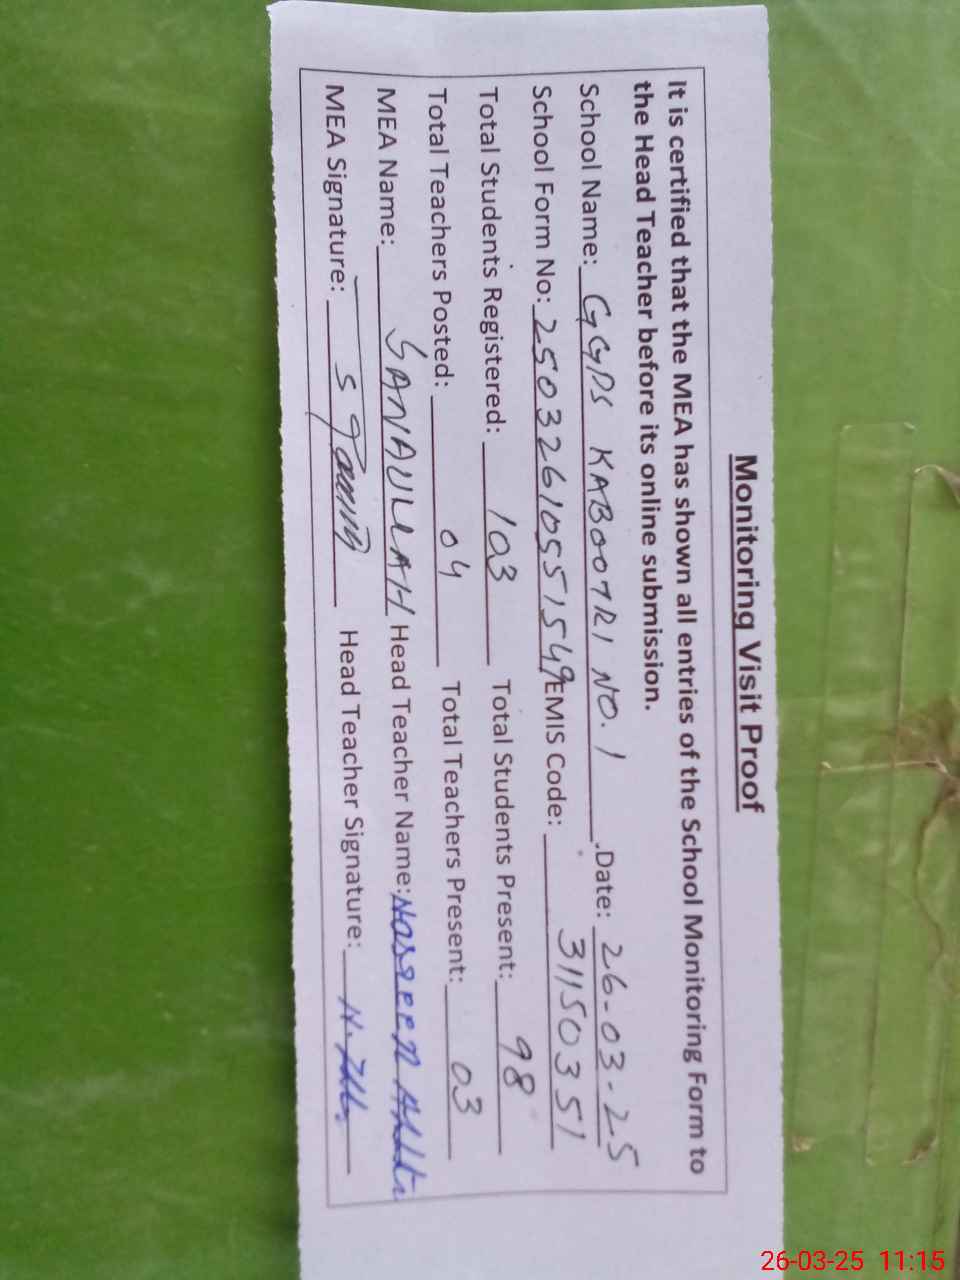 Monitoring Visit Proof
It is certified that the MEA has shown all entries of the School Monitoring Form to
the Head Teacher before its online submission.
School Name: GGPS KABOOTRI NO. 1 Date: 26-03-25
School Form No: 25032610551549 EMIS Code: 31150351
Total Students Registered: 103 Total Students Present: 98
Total Teachers Posted: 04 Total Teachers Present: 03
MEA Name: SANAULLAH Head Teacher Name: Nasreen
MEA Signature: Head Teacher Signature:
26-03-25 11:15